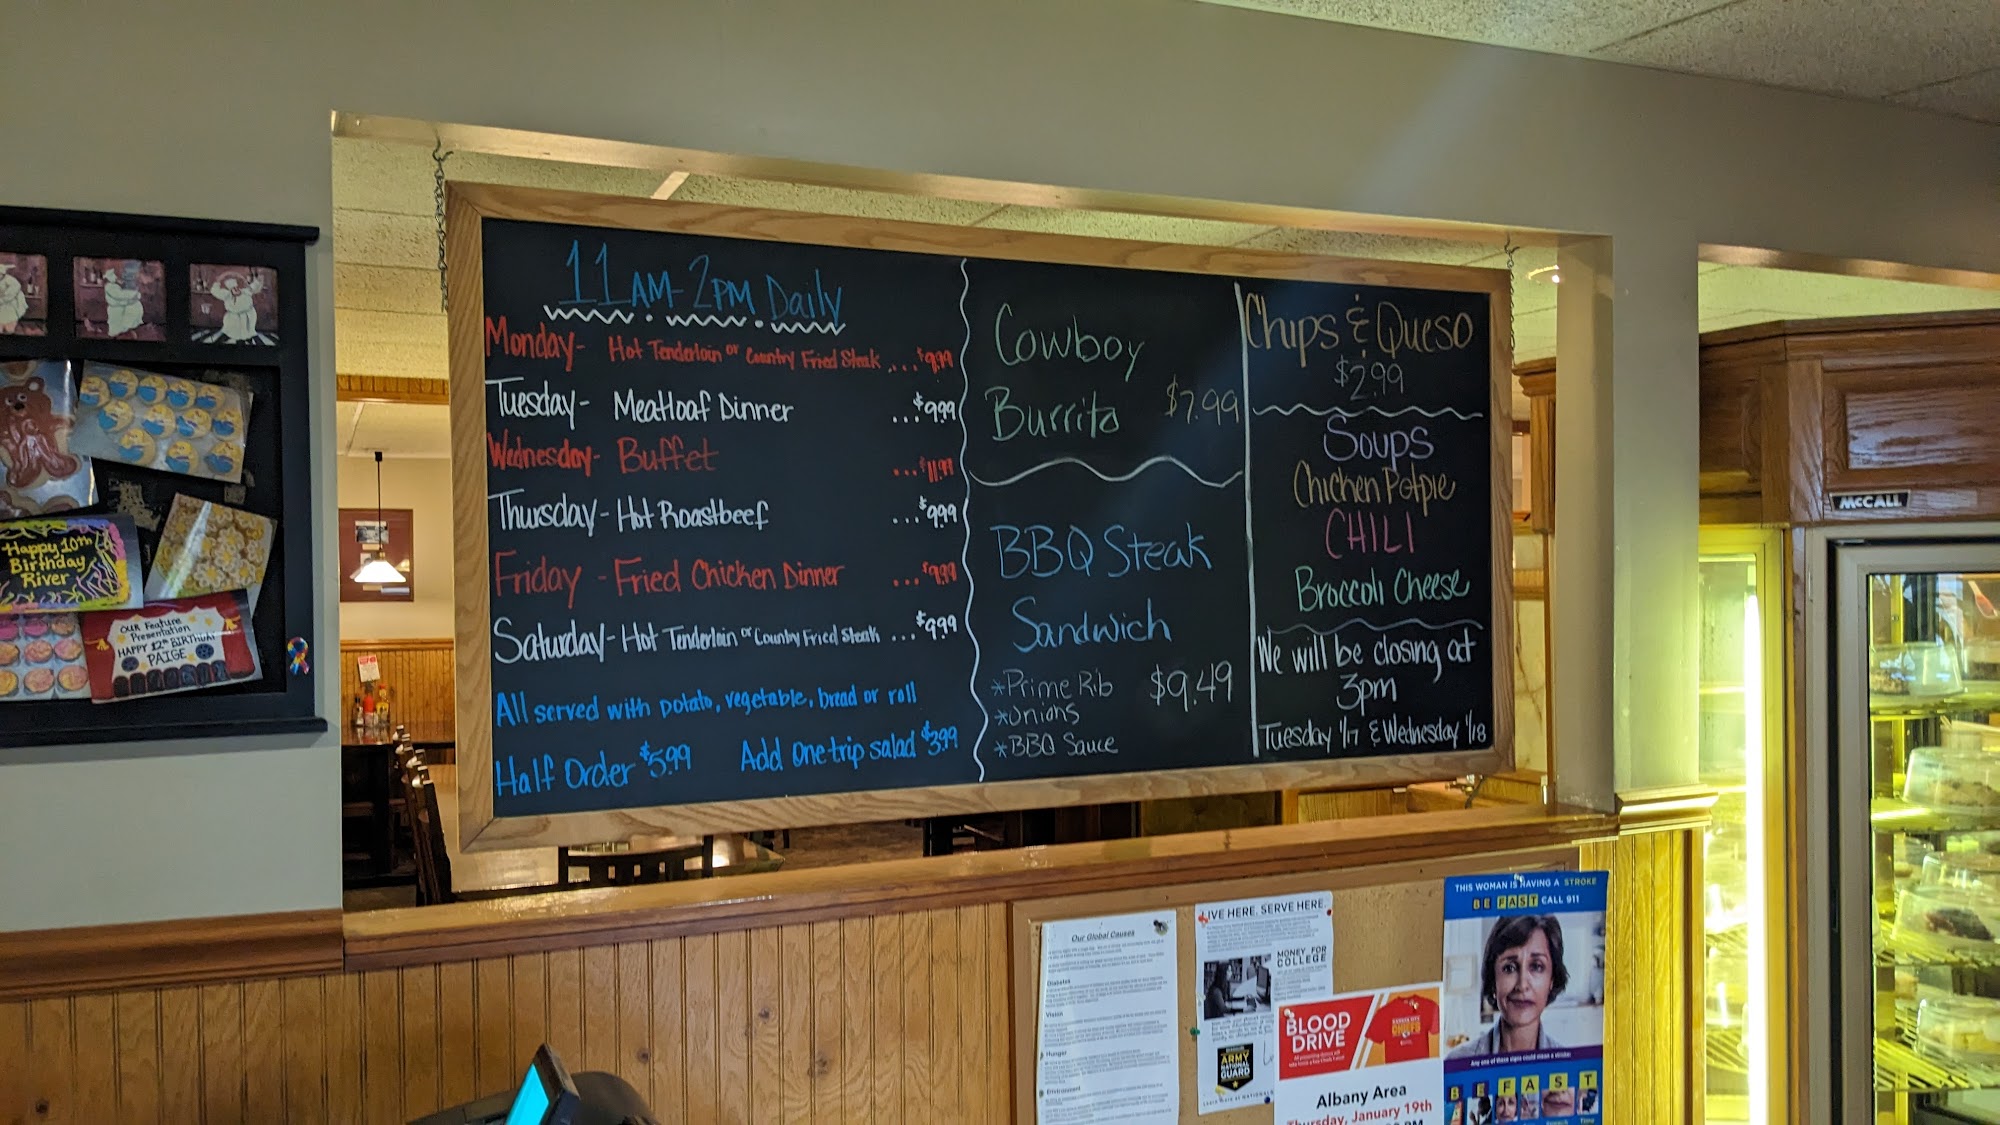 11AM-2PM Daily
Monday- Hot Tenderloin or Country Fried Steak ...$9.99
Tuesday- Meatloaf Dinner ...$9.99
Wednesday- Buffet ...$11.99
Thursday- Hot Roastbeef ...$9.99
Friday - Fried Chicken Dinner ...$9.99
Saturday- Hot Tenderloin or Country Fried Steak ...$9.99
All served with potato, vegetable, bread or roll
Half Order $5.99 Add one trip salad $3.99
Cowboy
Burrito $7.99
BBQ Steak
Sandwich
*Prime Rib $9.49
*Onions
*BBQ Sauce
Chips & Queso
$2.99
Soups
Chicken Potpie
CHILI
Broccoli Cheese
We will be closing at
3pm
Tuesday 1/17 & Wednesday 1/18
Happy 10th
Birthday
River
Our Feature
Presentation
HAPPY 12th BIRTHDAY
PAIGE
McCALL
Our Global Causes
Diabetes
Vision
Hunger
Environment
LIVE HERE. SERVE HERE.
MONEY FOR
COLLEGE
ARMY
NATIONAL
GUARD
BLOOD
DRIVE
CHIEFS
Albany Area
Thursday, January 19th
THIS WOMAN IS HAVING A STROKE
BE FAST CALL 911
Any one of these signs could mean a stroke:
B E F A S T